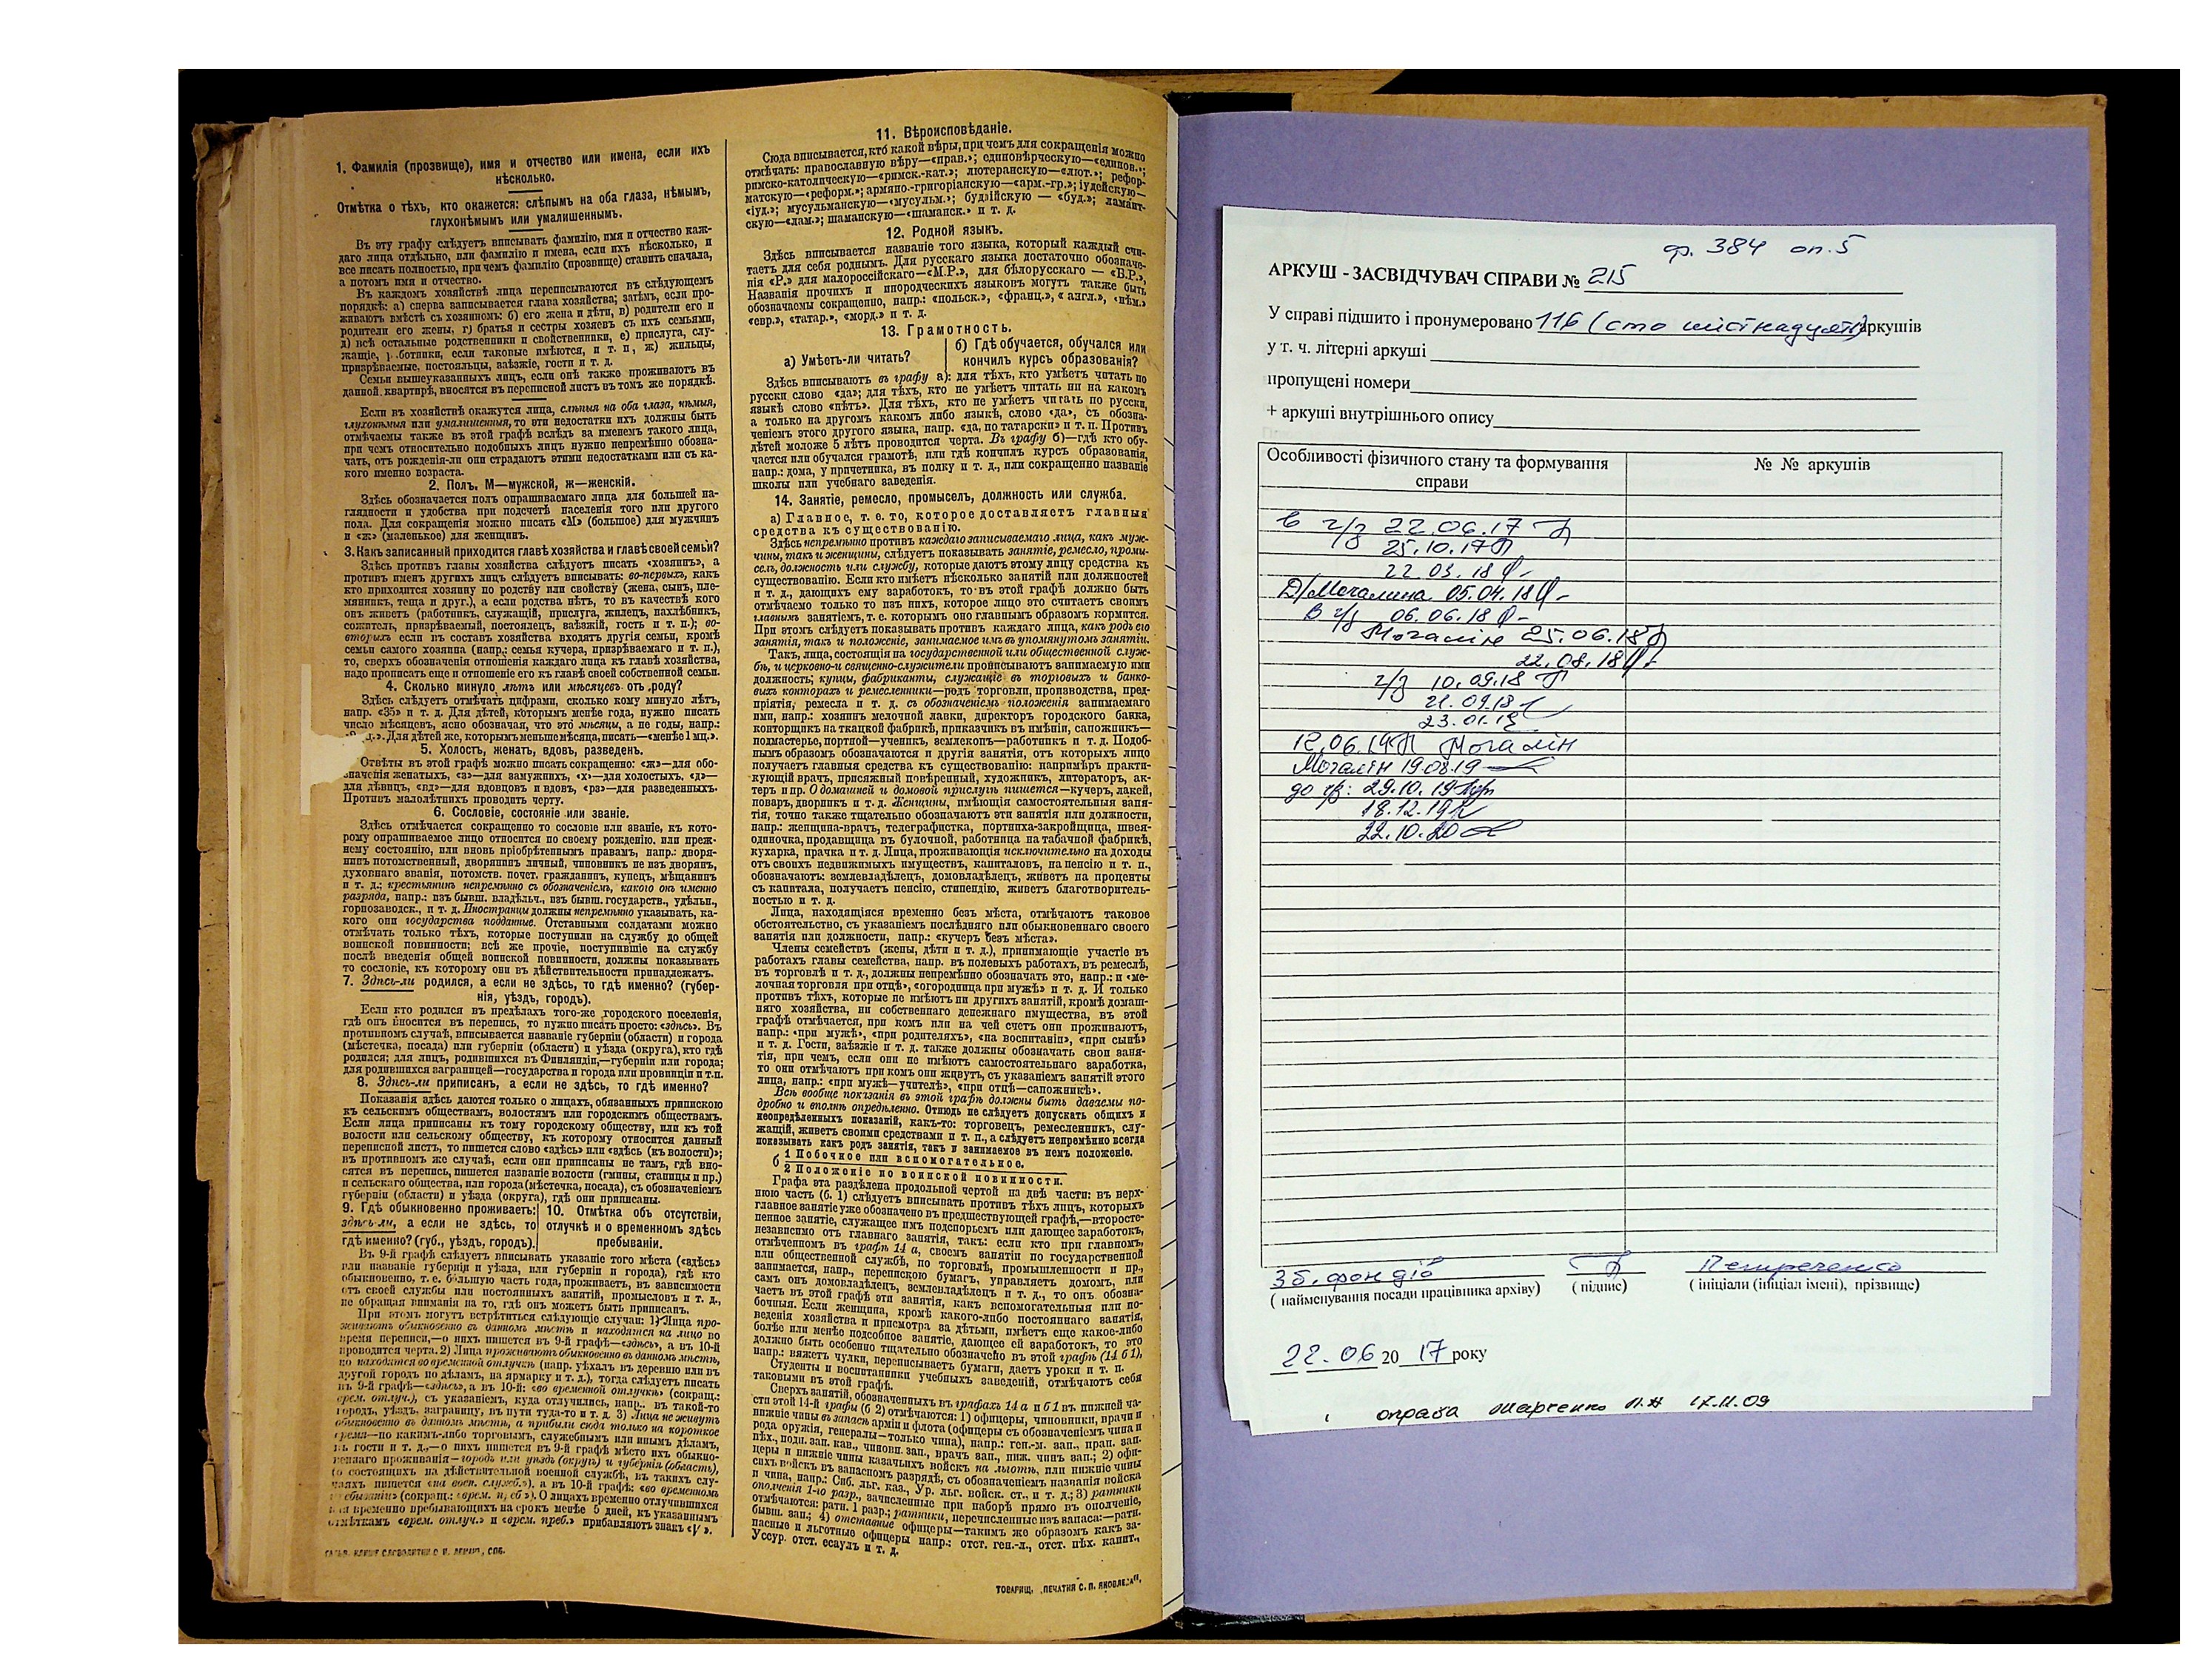 1. Фамилія (прозвище), имя и отчество или имена, если ихъ
нѣсколько.
Отмѣтка о тѣхъ, кто окажется: слѣпымъ на оба глаза, нѣмымъ,
глухонѣмымъ или умалишеннымъ.
Въ эту графу слѣдуетъ вписывать фамилію, имя и отчество каж-
даго лица отдѣльно, или фамилію и имена, если ихъ нѣсколько, и
все писать полностью, при чемъ фамилію (прозвище) ставить сначала,
а потомъ имя и отчество.
Въ каждомъ хозяйствѣ лица переписываются въ слѣдующемъ
порядкѣ: а) сперва записывается глава хозяйства; затѣмъ, если про-
живаютъ вмѣстѣ съ хозяиномъ: б) его жена и дѣти, в) родители его и
родители его жены, г) братья и сестры хозяевъ съ ихъ семьями,
д) всѣ остальные родственники и свойственники, е) прислуга, слу-
жащіе, работники, если таковые имѣются, и т. п, ж) жильцы,
призрѣваемые, постояльцы, заѣзжіе, гости и т. д.
Семьи вышеуказанныхъ лицъ, если онѣ также проживаютъ въ
данной квартирѣ, вносятся въ переписной листъ въ томъ же порядкѣ.
Если въ хозяйствѣ окажутся лица, слѣпыя на оба глаза, нѣмыя,
глухонѣмыя или умалишенныя, то эти недостатки ихъ должны быть
отмѣчаемы также въ этой графѣ вслѣдъ за именемъ такого лица,
при чемъ относительно подобныхъ лицъ нужно непремѣнно обозна-
чать, отъ рожденія-ли они страдаютъ этими недостатками или съ ка-
кого именно возраста.
2. Полъ. М—мужской, ж—женскій.
Здѣсь обозначается полъ опрашиваемаго лица для большей на-
глядности и удобства при подсчетѣ населенія того или другого
пола. Для сокращенія можно писать «М» (большое) для мужчинъ
и «ж» (маленькое) для женщинъ.
3. Какъ записанный приходится главѣ хозяйства и главѣ своей семьи?
Здѣсь противъ главы хозяйства слѣдуетъ писать «хозяинъ», а
противъ именъ другихъ лицъ слѣдуетъ вписывать: во-первыхъ, какъ
кто приходится хозяину по родству или свойству (жена, сынъ, пле-
мянникъ, теща и друг.), а если родства нѣтъ, то въ качествѣ кого
онъ живетъ (работникъ, служащій, прислуга, жилецъ, нахлѣбникъ,
сожитель, призрѣваемый, постоялецъ, заѣзжій, гость и т. п.); во-
вторыхъ если въ составъ хозяйства входятъ другія семьи, кромѣ
семьи самого хозяина (напр.: семья кучера, призрѣваемаго и т. п.),
то, сверхъ обозначенія отношенія каждаго лица къ главѣ хозяйства,
надо прописать еще и отношеніе его къ главѣ своей собственной семьи.
4. Сколько минуло лѣтъ или мѣсяцевъ отъ роду?
Здѣсь слѣдуетъ отмѣчать цифрами, сколько кому минуло лѣтъ,
напр. «35» и т. д. Для дѣтей, которымъ менѣе года, нужно писать
число мѣсяцевъ, ясно обозначая, что это мѣсяцы, а не годы, напр.:
Для дѣтей же, которымъ меньше мѣсяца, писать—«менѣе 1 мц.».
5. Холостъ, женатъ, вдовъ, разведенъ.
Отвѣты въ этой графѣ можно писать сокращенно: «ж»—для обо-
значенія женатыхъ, «з»—для замужнихъ, «х»—для холостыхъ, «д»—
для дѣвицъ, «вд»—для вдовцовъ и вдовъ, «рз»—для разведенныхъ.
Противъ малолѣтнихъ проводить черту.
6. Сословіе, состояніе или званіе.
Здѣсь отмѣчается сокращенно то сословіе или званіе, къ кото-
рому опрашиваемое лицо относится по своему рожденію, или преж-
нему состоянію, или вновь пріобрѣтеннымъ правамъ, напр.: дворя-
нинъ потомственный, дворянинъ личный, чиновникъ не изъ дворянъ,
духовнаго званія, потомств. почет. гражданинъ, купецъ, мѣщанинъ
и т. д.; крестьянинъ непремѣнно съ обозначеніемъ, какого онъ именно
разряда, напр.: изъ бывш. владѣльч., изъ бывш. государств., удѣльн.,
горнозаводск., и т. д. Иностранцы должны непремѣнно указывать, ка-
кого они государства подданные. Отставными солдатами можно
отмѣчать только тѣхъ, которые поступили на службу до общей
воинской повинности; всѣ же прочіе, поступившіе на службу
послѣ введенія общей воинской повинности, должны показывать
то сословіе, къ которому они въ дѣйствительности принадлежатъ.
7. Здѣсь-ли родился, а если не здѣсь, то гдѣ именно? (губер-
нія, уѣздъ, городъ).
Если кто родился въ предѣлахъ того-же городского поселенія,
гдѣ онъ вносится въ перепись, то нужно писать просто: «здѣсь». Въ
противномъ случаѣ, вписывается названіе губерніи (области) и города
(мѣстечка, посада) или губерніи (области) и уѣзда (округа), кто гдѣ
родился; для лицъ, родившихся въ Финляндіи,—губерніи или города;
для родившихся заграницей—государства и города или провинціи и т.п.
8. Здѣсь-ли приписанъ, а если не здѣсь, то гдѣ именно?
Показанія здѣсь даются только о лицахъ, обязанныхъ припискою
къ сельскимъ обществамъ, волостямъ или городскимъ обществамъ.
Если лица приписаны къ тому городскому обществу, или къ той
волости или сельскому обществу, къ которому относится данный
переписной листъ, то пишется слово «здѣсь» или «здѣсь (къ волости)»;
въ противномъ же случаѣ, если они приписаны не тамъ, гдѣ вно-
сятся въ перепись, пишется названіе волости (гмины, станицы и пр.)
и сельскаго общества, или города (мѣстечка, посада), съ обозначеніемъ
губерніи (области) и уѣзда (округа), гдѣ они приписаны.
9. Гдѣ обыкновенно проживаетъ:
здѣсь-ли, а если не здѣсь, то
гдѣ именно? (губ., уѣздъ, городъ).
10. Отмѣтка объ отсутствіи,
отлучкѣ и о временномъ здѣсь
пребываніи.
Въ 9-й графѣ слѣдуетъ вписывать указаніе того мѣста («здѣсь»
или названіе губерніи и уѣзда, или губерніи и города), гдѣ кто
обыкновенно, т. е. бо́льшую часть года, проживаетъ, въ зависимости
отъ своей службы или постоянныхъ занятій, промысловъ и т. д.,
не обращая вниманія на то, гдѣ онъ можетъ быть приписанъ.
При этомъ могутъ встрѣтиться слѣдующіе случаи: 1) Лица про-
живаютъ обыкновенно съ данномъ мѣстѣ и находятся на лицо во
время переписи,—о нихъ пишется въ 9-й графѣ—«здѣсь», а въ 10-й
проводится черта. 2) Лица проживаютъ обыкновенно въ данномъ мѣстѣ,
но находятся во временной отлучкѣ (напр. уѣхалъ въ деревню или въ
другой городъ по дѣламъ, на ярмарку и т. д.), тогда слѣдуетъ писать
въ 9-й графѣ—«здѣсь», а въ 10-й: «во временной отлучкѣ» (сокращ.:
врем. отлуч.), съ указаніемъ, куда отлучились, напр.. въ такой-то
городъ, уѣздъ, заграницу, въ пути туда-то и т. д. 3) Лица не живутъ
обыкновенно въ данномъ мѣстѣ, а прибыли сюда только на короткое
время—по какимъ-либо торговымъ, служебнымъ или инымъ дѣламъ,
въ гости и т. д.,—о нихъ пишется въ 9-й графѣ мѣсто ихъ обыкно-
веннаго проживанія—городъ или уѣздъ (округъ) и губернія (область),
(о состоящихъ на дѣйствительной военной службѣ, въ такихъ слу-
чаяхъ пишется «на воен. службѣ»), а въ 10-й графѣ: «во временномъ
пребываніи» (сокращ.: «врем. преб.»). О лицахъ временно отлучившихся
или временно пребывающихъ на срокъ менѣе 5 дней, къ указаннымъ
отмѣткамъ «врем. отлуч.» и «врем. преб.» прибавляютъ знакъ «V».
11. Вѣроисповѣданіе.
Сюда вписывается, кто какой вѣры, при чемъ для сокращенія можно
отмѣчать: православную вѣру—«прав.»; единовѣрческую—«единов.»;
римско-католическую—«римск.-кат.»; лютеранскую—«лют.»; рефор-
матскую—«реформ.»; армяно.-григоріанскую—«арм.-гр.»; іудейскую—
«іуд.»; мусульманскую—«мусульм.»; буддійскую — «буд.»; ламаит-
скую—«лам.»; шаманскую—«шаманск.» и т. д.
12. Родной языкъ.
Здѣсь вписывается названіе того языка, который каждый счи-
таетъ для себя роднымъ. Для русскаго языка достаточно обозначе-
нія «Р.» для малороссійскаго—«М.Р.», для бѣлорусскаго — «Б.Р.».
Названія прочихъ и инородческихъ языковъ могутъ также быть
обозначаемы сокращенно, напр.: «польск.», «франц.», « англ.», «нѣм.»
«евр.», «татар.», «морд.» и т. д.
13. Грамотность.
а) Умѣетъ-ли читать?
б) Гдѣ обучается, обучался или
кончилъ курсъ образованія?
Здѣсь вписываютъ въ графу а): для тѣхъ, кто умѣетъ читать по
русски слово «да»; для тѣхъ, кто не умѣетъ читать ни на какомъ
языкѣ слово «нѣтъ». Для тѣхъ, кто не умѣетъ читать по русски,
а только на другомъ какомъ либо языкѣ, слово «да», съ обозна-
ченіемъ этого другого языка, напр. «да, по татарски» и т. п. Противъ
дѣтей моложе 5 лѣтъ проводится черта. Въ графу б)—гдѣ кто обу-
чается или обучался грамотѣ, или гдѣ кончилъ курсъ образованія,
напр.: дома, у причетника, въ полку и т. д., или сокращенно названіе
школы или учебнаго заведенія.
14. Занятіе, ремесло, промыселъ, должность или служба.
а) Главное, т. е. то, которое доставляетъ главныя
средства къ существованію.
Здѣсь непремѣнно противъ каждаго записываемаго лица, какъ муж-
чины, такъ и женщины, слѣдуетъ показывать занятіе, ремесло, промы-
селъ, должность или службу, которые даютъ этому лицу средства къ
существованію. Если кто имѣетъ нѣсколько занятій или должностей
и т. д., дающихъ ему заработокъ, то въ этой графѣ должно быть
отмѣчаемо только то изъ нихъ, которое лицо это считаетъ своимъ
главнымъ занятіемъ, т. е. которымъ оно главнымъ образомъ кормится.
При этомъ слѣдуетъ показывать противъ каждаго лица, какъ родъ его
занятія, такъ и положеніе, занимаемое имъ въ упомянутомъ занятіи.
Такъ, лица, состоящія на государственной или общественной служ-
бѣ, и церковно-и священно-служители прописываютъ занимаемую ими
должность; купцы, фабриканты, служащіе въ торговыхъ и банко-
выхъ конторахъ и ремесленники—родъ торговли, производства, пред-
пріятія, ремесла и т. д. съ обозначеніемъ положенія занимаемаго
ими, напр.: хозяинъ мелочной лавки, директоръ городского банка,
конторщикъ на ткацкой фабрикѣ, приказчикъ въ имѣніи, сапожникъ—
подмастерье, портной—ученикъ, землекопъ—работникъ и т. д. Подоб-
нымъ образомъ обозначаются и другія занятія, отъ которыхъ лицо
получаетъ главныя средства къ существованію: напримѣръ практи-
кующій врачъ, присяжный повѣренный, художникъ, литераторъ, ак-
теръ и пр. О домашней и домовой прислугѣ пишется—кучеръ, лакей,
поваръ, дворникъ и т. д. Женщины, имѣющія самостоятельныя заня-
тія, точно также тщательно обозначаютъ эти занятія или должности,
напр.: женщина-врачъ, телеграфистка, портниха-закройщица, швея-
одиночка, продавщица въ булочной, работница на табачной фабрикѣ,
кухарка, прачка и т. д. Лица, проживающія исключительно на доходы
отъ своихъ недвижимыхъ имуществъ, капиталовъ, на пенсію и т. п.,
обозначаютъ: землевладѣлецъ, домовладѣлецъ, живетъ на проценты
съ капитала, получаетъ пенсію, стипендію, живетъ благотворитель-
ностью и т. д.
Лица, находящіяся временно безъ мѣста, отмѣчаютъ таковое
обстоятельство, съ указаніемъ послѣдняго или обыкновеннаго своего
занятія или должности, напр.: «кучеръ безъ мѣста».
Члены семействъ (жены, дѣти и т. д.), принимающіе участіе въ
работахъ главы семейства, напр. въ полевыхъ работахъ, въ ремеслѣ,
въ торговлѣ и т. д., должны непремѣнно обозначать это, напр.: и «ме-
лочная торговля при отцѣ», «огородница при мужѣ» и т. д. И только
противъ тѣхъ, которые не имѣютъ ни другихъ занятій, кромѣ домаш-
няго хозяйства, ни собственнаго денежнаго имущества, въ этой
графѣ отмѣчается, при комъ или на чей счетъ они проживаютъ,
напр.: «при мужѣ», «при родителяхъ», «на воспитаніи», «при сынѣ»
и т. д. Гости, заѣзжіе и т. д. также должны обозначать свои заня-
тія, при чемъ, если они не имѣютъ самостоятельнаго заработка,
то они отмѣчаютъ при комъ они живутъ, съ указаніемъ занятій этого
лица, напр.: «при мужѣ—учителѣ», «при отцѣ—сапожникѣ».
Всѣ вообще показанія въ этой графѣ должны быть даваемы по-
дробно и вполнѣ опредѣленно. Отнюдь не слѣдуетъ допускать общихъ и
неопредѣленныхъ показаній, какъ-то: торговецъ, ремесленникъ, слу-
жащій, живетъ своими средствами и т. п., а слѣдуетъ непремѣнно всегда
показывать какъ родъ занятія, такъ и занимаемое въ немъ положеніе.
б 1 Побочное или вспомогательное.
2 Положеніе по воинской повинности.
Графа эта раздѣлена продольной чертой на двѣ части: въ верх-
нюю часть (б. 1) слѣдуетъ вписывать противъ тѣхъ лицъ, которыхъ
главное занятіе уже обозначено въ предшествующей графѣ,—второсте-
пенное занятіе, служащее имъ подспорьемъ или дающее заработокъ,
независимо отъ главнаго занятія, такъ: если кто при главномъ,
отмѣченномъ въ графѣ 14 а, своемъ занятіи по государственной
или общественной службѣ, по торговлѣ, промышленности и пр.,
занимается, напр., перепискою бумагъ, управляетъ домомъ, или
самъ онъ домовладѣлецъ, землевладѣлецъ и т. д., то онъ обозна-
чаетъ въ этой графѣ эти занятія, какъ вспомогательныя или по-
бочныя. Если женщина, кромѣ какого-либо постояннаго занятія,
веденія хозяйства и присмотра за дѣтьми, имѣетъ еще какое-либо
болѣе или менѣе подсобное занятіе, дающее ей заработокъ, то это
должно быть особенно тщательно обозначено въ этой графѣ (14 б 1),
напр.: вяжетъ чулки, переписываетъ бумаги, даетъ уроки и т. п.
Студенты и воспитанники учебныхъ заведеній, отмѣчаютъ себя
таковыми въ этой графѣ.
Сверхъ занятій, обозначенныхъ въ графахъ 14 а и б 1 въ нижней ча-
сти этой 14-й графы (б 2) отмѣчаются: 1) офицеры, чиновники, врачи и
нижніе чины въ запасѣ арміи и флота (офицеры съ обозначеніемъ чина и
рода оружія, генералы—только чина), напр.: ген.-м. зап., прап. зап.
пѣх., подп. зап. кав., чиновн. зап., врачъ зап., ниж. чинъ зап.; 2) офи-
церы и нижніе чины казачьихъ войскъ на льготѣ, или нижніе чины
сихъ войскъ въ запасномъ разрядѣ, съ обозначеніемъ названія войска
и чина, напр.: Спб. льг. каз., Ур. льг. войск. ст., и т. д.; 3) ратники
ополченія 1-го разр., зачисленные при наборѣ прямо въ ополченіе,
отмѣчаются: ратн. 1 разр.; ратники, перечисленные изъ запаса:—ратн.
бывш. зап.; 4) отставные офицеры—такимъ же образомъ какъ за-
пасные и льготные офицеры напр.: отст. ген.-л., отст. пѣх. капит.,
Уссур. отст. есаулъ и т. д.
ТОВАРИЩ. „ПЕЧАТНЯ С. П. ЯКОВЛЕВА".
ф. 384 оп. 5
АРКУШ - ЗАСВІДЧУВАЧ СПРАВИ № 215
У справі підшито і пронумеровано 116 (сто шістнадцять) аркушів
у т. ч. літерні аркуші
пропущені номери
+ аркуші внутрішнього опису
Особливості фізичного стану та формування
справи
№ № аркушів
в ч/з 22.06.17
ч/з 25.10.17
22.03.18
05.04.18
В ч/з 06.06.18
Могалін 25.06.18
22.08.18
ч/з 10.09.18
21.09.18
23.01.19
12.06.19 Могалін
Могалін 19.08.19
до ч/з: 29.10.19
18.12.19
22.10.20
Зб. фондів
Петреченко
( найменування посади працівника архіву)
( підпис)
( ініціали (ініціал імені), прізвище)
22.06 2017 року
оправа Марченко 17.11.09